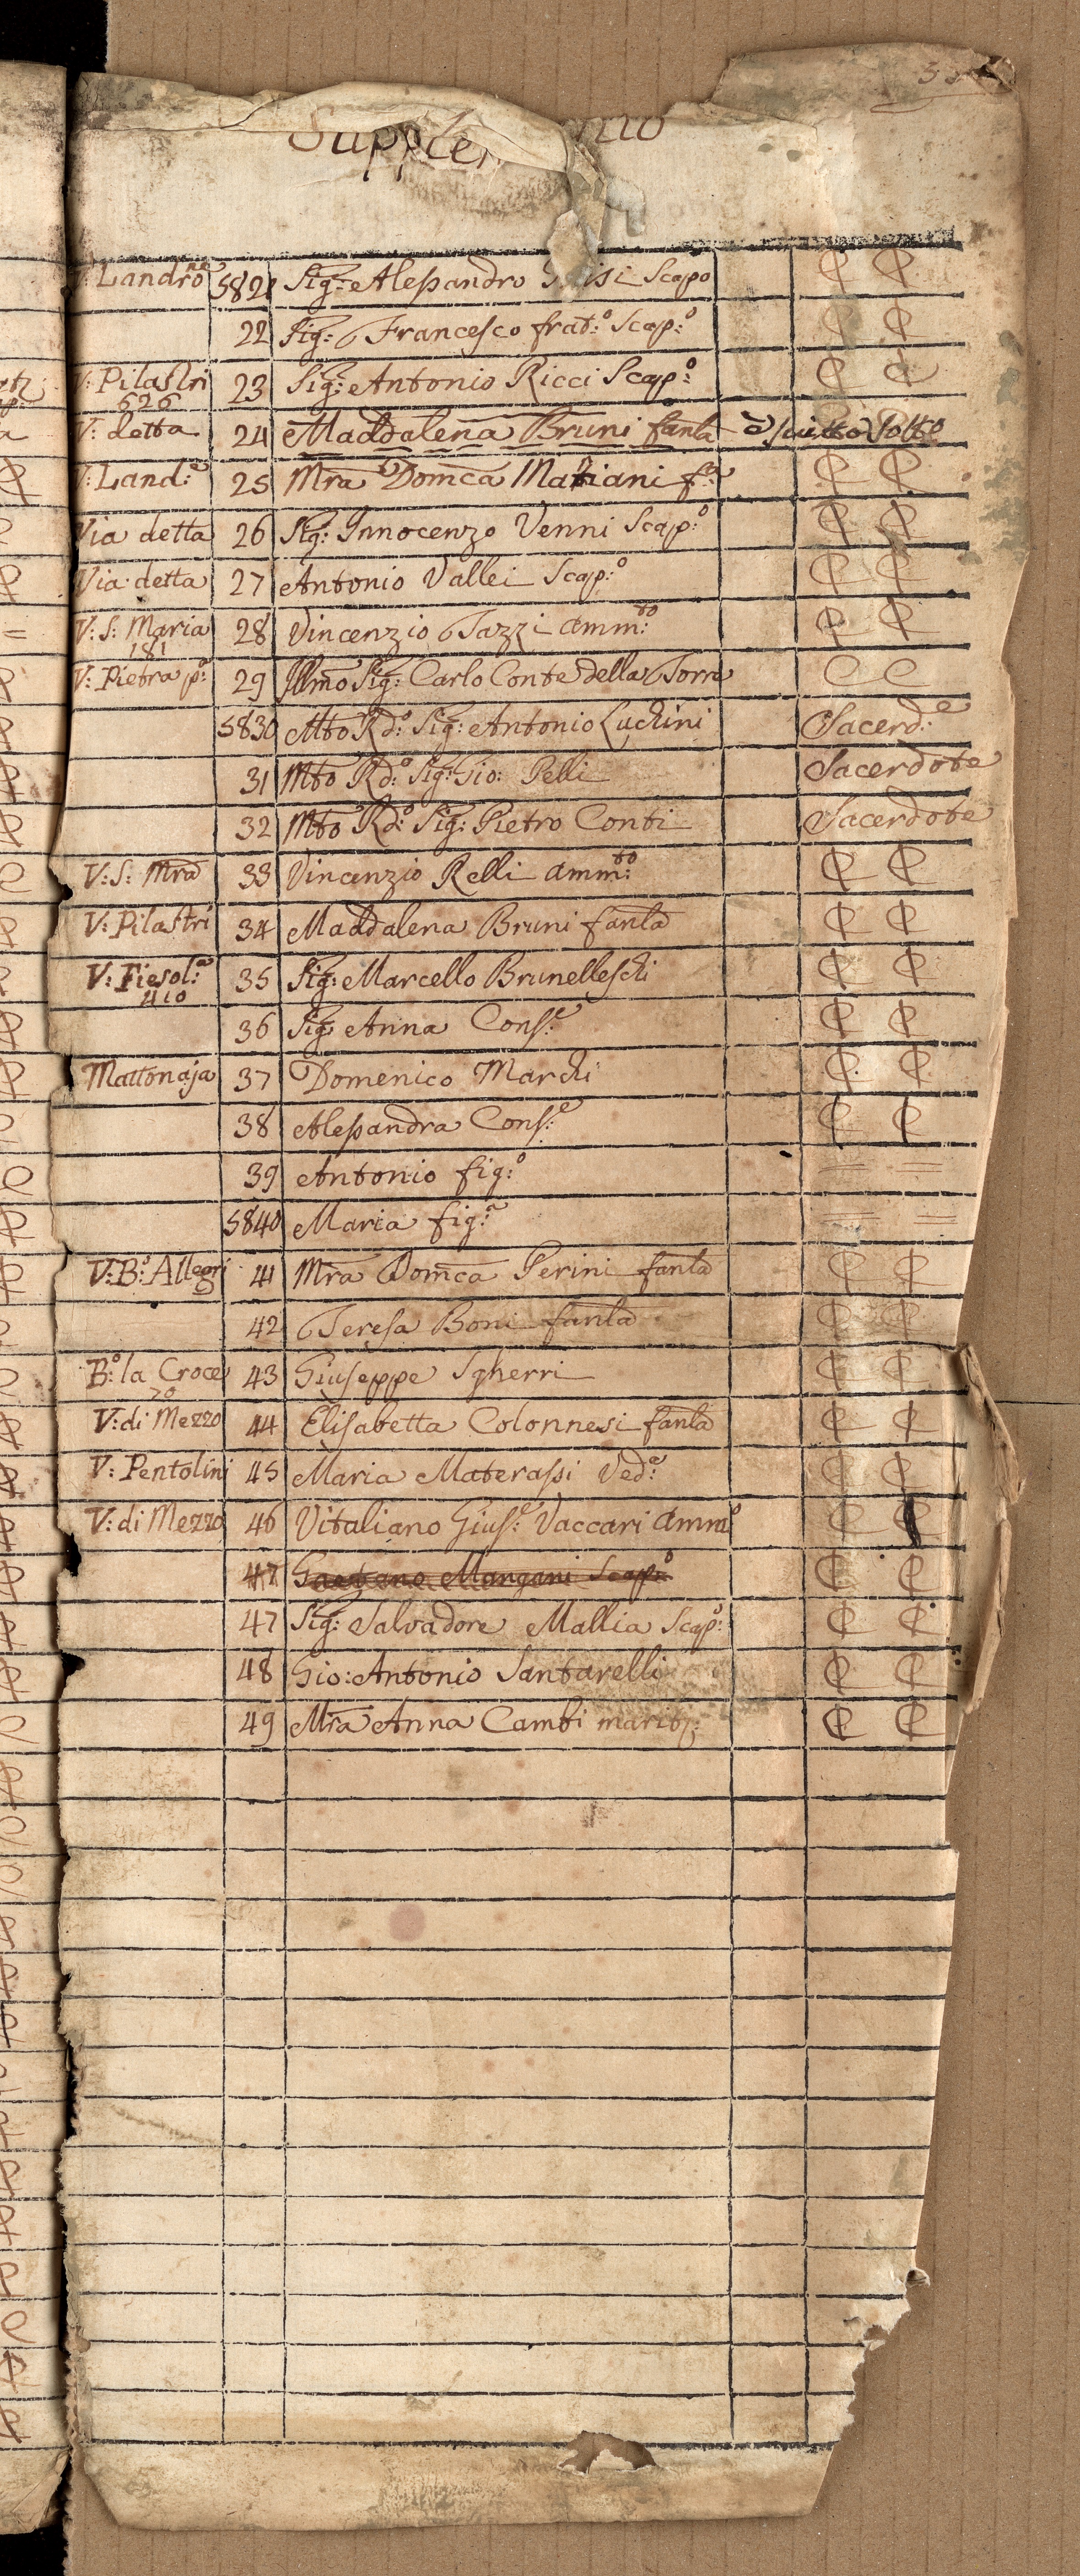 Supplem
V: Landrone 5821 Sig: Alessandro Scapo C C
22 Sig: Francesco frat:o Scap:o C C
V: Pilastri 23 Sig: Antonio Ricci Scap:o C C
626
V: detta 24 Maddalena Bruni fanla è scritto sotto
V: Land:e 25 Mra Domca Mariani C C
Via detta 26 Sig: Innocenzo Venni Scap:o C C
Via detta 27 Antonio Vallei Scap:o C C
V: S: Maria 28 Vincenzio Tazzi amm:to C C
181
V: Pietra p:a 29 Illmo Sig: Carlo Conte della Torre C C
5830 Mto Rd:o Sig: Antonio Luchini Sacerd:e
31 Mto Rd:o Sig: Gio: Pelli Sacerdote
32 Mto Rd:o Sig: Pietro Conti Sacerdote
V: S: Mra 33 Vincenzio Relli amm:to C C
V: Pilastri 34 Maddalena Bruni fanla C C
V: Fiesol:a 35 Sig: Marcello Brunelleschi C C
410
36 Sig: Anna Cons:e C C
Mattonaja 37 Domenico Marchi C C
38 Alessandra Cons:e C C
39 Antonio fig:o = =
5840 Maria fig:a = =
V: B:o Allegri 41 Mra Domca Perini fanla C C
42 Teresa Boni fanla C C
B:o la Croce 43 Giuseppe Sgherri C C
70
V: di Mezzo 44 Elisabetta Colonnesi fanla C C
V: Pentolini 45 Maria Materassi Ved:a C C
V: di Mezzo 46 Vitaliano Gius:e Vaccari amm:o C C
47 Gaetano Mangani Scap:o C C
47 Sig: Salvadore Mallia Scap: C C
48 Gio: Antonio Santarelli C C
49 Mra Anna Cambi marit: C C